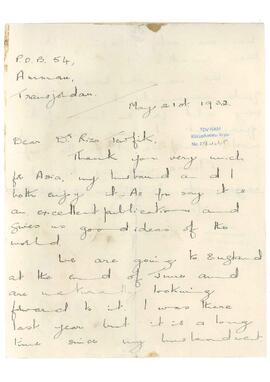 P.O.B. 54,
Amman,
Transjordan.
May 21st 1932
Dear Dr Riza Tewfik.
Thank you very much
for Asia, my husband and I
both enjoy it. As you say it is
an excellent publication and
gives us good ideas of the
world
We are going to England
at the end of June and
are naturally looking
forward to it. I was there
last year but it is a long
time since my husband went